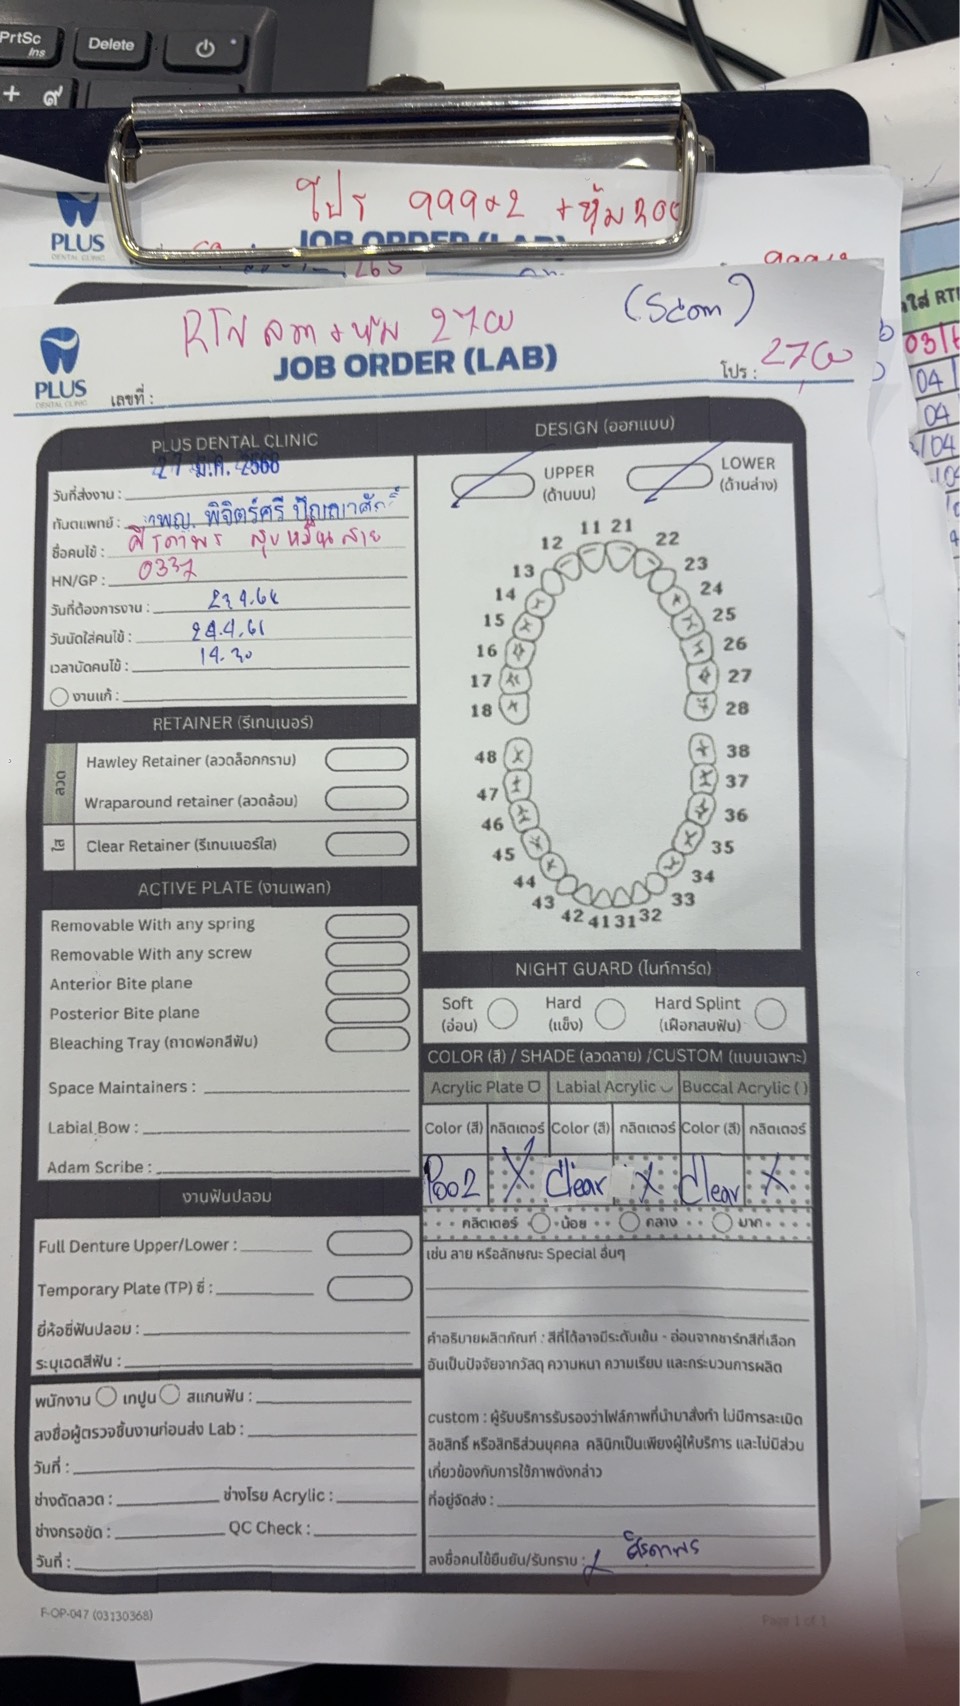 PrtSc
Ins
Delete
+ ๙
โปร 999x2 + หุ้ม 200
PLUS
JOB ORDER (LAB)
RTN ลวด + หุ้ม 2700
(Scan)
PLUS
DENTAL CLINIC
JOB ORDER (LAB)
เลขที่ :
โปร : 2700
ใส่ RTN
04
04
PLUS DENTAL CLINIC
วันที่ส่งงาน : 27 มี.ค. 2568
ทันตแพทย์ : ทพญ. พิจิตร์ศรี ปัญญาศักดิ์
ชื่อคนไข้ :
HN/GP : 0337
วันที่ต้องการงาน :
วันนัดใส่คนไข้ :
เวลานัดคนไข้ : 14.30
งานแก้ :
RETAINER (รีเทนเนอร์)
ลวด
Hawley Retainer (ลวดล็อกกราม)
Wraparound retainer (ลวดล้อม)
ใส
Clear Retainer (รีเทนเนอร์ใส)
ACTIVE PLATE (งานเพลท)
Removable With any spring
Removable With any screw
Anterior Bite plane
Posterior Bite plane
Bleaching Tray (ถาดฟอกสีฟัน)
Space Maintainers :
Labial Bow :
Adam Scribe :
งานฟันปลอม
Full Denture Upper/Lower :
Temporary Plate (TP) ซี่ :
ยี่ห้อซี่ฟันปลอม :
ระบุเฉดสีฟัน :
พนักงาน เทปูน สแกนฟัน :
ลงชื่อผู้ตรวจชิ้นงานก่อนส่ง Lab :
วันที่ :
ช่างดัดลวด : ช่างโรย Acrylic :
ช่างกรอขัด : QC Check :
วันที่ :
DESIGN (ออกแบบ)
UPPER
(ด้านบน)
LOWER
(ด้านล่าง)
11 21
12 22
13 23
14 24
15 25
16 26
17 27
18 28
48 38
47 37
46 36
45 35
44 34
43 33
42 41 31 32
NIGHT GUARD (ไนท์การ์ด)
Soft
(อ่อน)
Hard
(แข็ง)
Hard Splint
(เฝือกสบฟัน)
COLOR (สี) / SHADE (ลวดลาย) /CUSTOM (แบบเฉพาะ)
Acrylic Plate Labial Acrylic Buccal Acrylic ( )
Color (สี) กลิตเตอร์ Color (สี) กลิตเตอร์ Color (สี) กลิตเตอร์
P002 X Clear X Clear X
กลิตเตอร์ น้อย กลาง มาก
เช่น ลาย หรือลักษณะ Special อื่นๆ
คำอธิบายผลิตภัณฑ์ : สีที่ได้อาจมีระดับเข้ม - อ่อนจากชาร์ทสีที่เลือก
อันเป็นปัจจัยจากวัสดุ ความหนา ความเรียบ และกระบวนการผลิต
custom : ผู้รับบริการรับรองว่าไฟล์ภาพที่นำมาสั่งทำ ไม่มีการละเมิด
ลิขสิทธิ์ หรือสิทธิส่วนบุคคล คลินิกเป็นเพียงผู้ให้บริการ และไม่มีส่วน
เกี่ยวข้องกับการใช้ภาพดังกล่าว
ที่อยู่จัดส่ง :
ลงชื่อคนไข้ยืนยัน/รับทราบ :
F-OP-047 (03130368)
Page 1 of 1